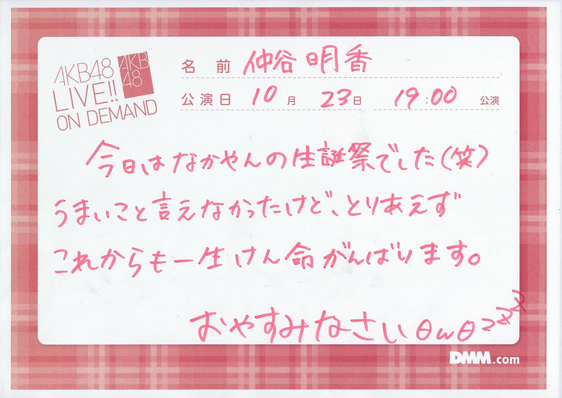 AKB48
LIVE!!
ON DEMAND
AKB
48
名前 仲谷明香
公演日 10月 23日 19:00 公演
今日はなかやんの生誕祭でした(笑)
うまいこと言えなかったけど、とりあえず
これからも一生けん命がんばります。
おやすみなさいθωθzzz
DMM.com